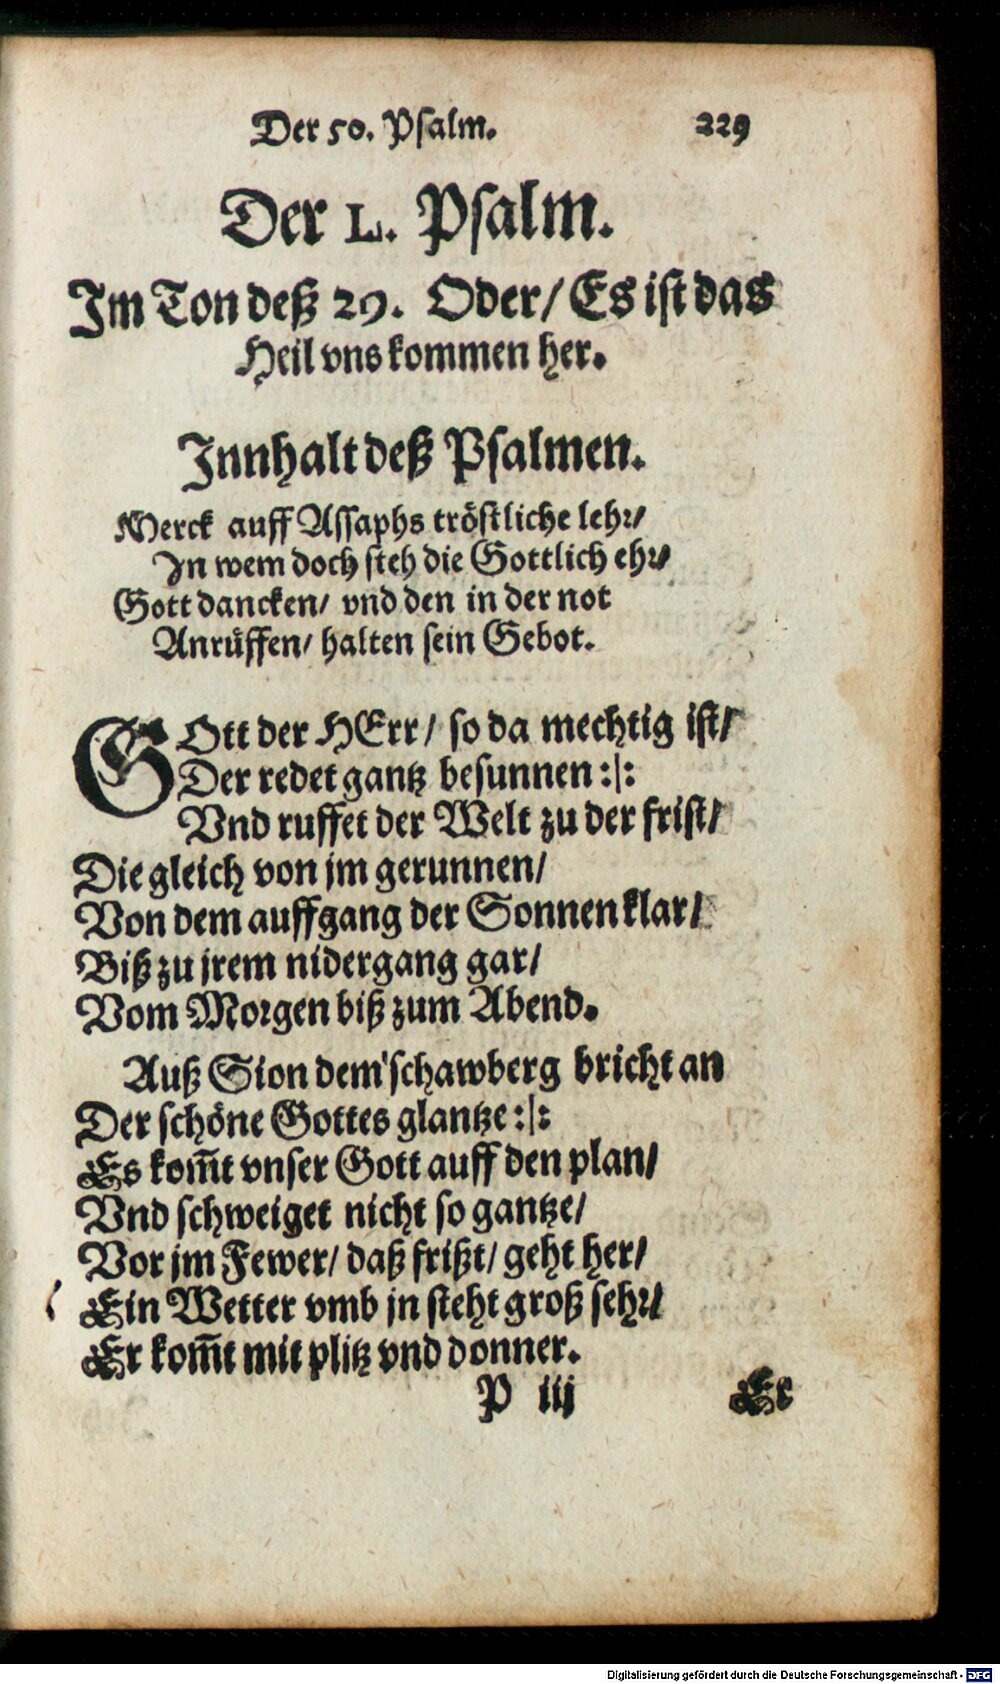 Der 50. Psalm. 229
Der L. Psalm.
Im Ton deß 29. Oder/ Es ist das
Heil vns kommen her.
Innhalt deß Psalmen.
Merck auff Assaphs tröstliche lehr/
In wem doch steh die Gottlich ehr/
Gott dancken/ vnd den in der not
Anrüffen/ halten sein Gebot.
GOtt der HErr/ so da mechtig ist/
Der redet gantz besunnen :|:
Vnd ruffet der Welt zu der frist/
Die gleich von jm gerunnen/
Von dem auffgang der Sonnen klar/
Biß zu jrem nidergang gar/
Vom Morgen biß zum Abend.
Auß Sion dem schawberg bricht an
Der schöne Gottes glantze :|:
Es kom̄t vnser Gott auff den plan/
Vnd schweiget nicht so gantze/
Vor jm Fewer/ daß frißt/ geht her/
Ein Wetter vmb jn steht groß sehr/
Er kom̄t mit plitz vnd donner.
P iij Er
Digitalisierung gefördert durch die Deutsche Forschungsgemeinschaft - DFG